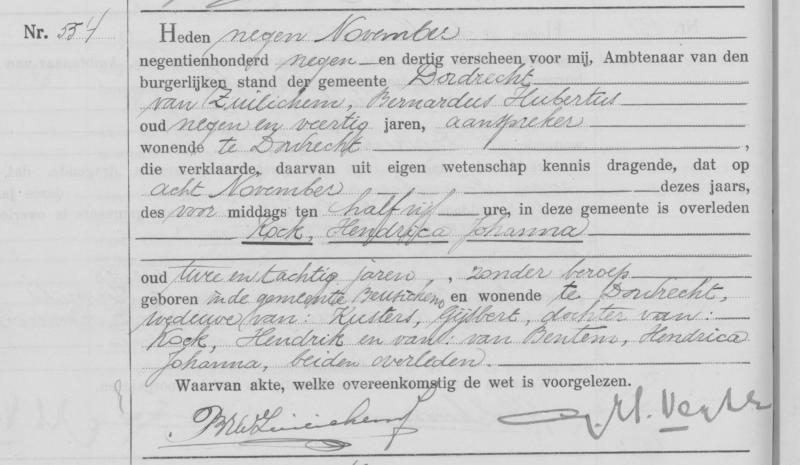 Nr. 554
Heden negen November
negentienhonderd negen en dertig verscheen voor mij, Ambtenaar van den
burgerlijken stand der gemeente Dordrecht
van Zuilichem, Bernardus Hubertus
oud negen en veertig jaren, aanspreker
wonende te Dordrecht,
die verklaarde, daarvan uit eigen wetenschap kennis dragende, dat op
acht November dezes jaars,
des voor middags ten half vijf ure, in deze gemeente is overleden
Kock, Hendrica Johanna
oud twee en tachtig jaren, , zonder beroep
geboren in de gemeente Beusichem en wonende te Dordrecht,
weduwe van: Kusters, Gijsbert, dochter van:
Kock, Hendrik en van: van Bentem, Hendrica
Johanna, beiden overleden.
Waarvan akte, welke overeenkomstig de wet is voorgelezen.